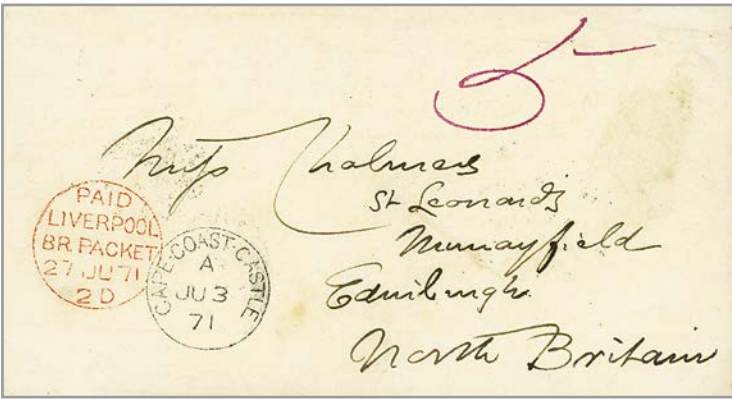 5
Miss Chalmers
St Leonards
Murrayfield
Edinburgh
North Britain
PAID
LIVERPOOL
BR. PACKET
27 JU 71
2D
CAPE-COAST-CASTLE
A
JU 3
71